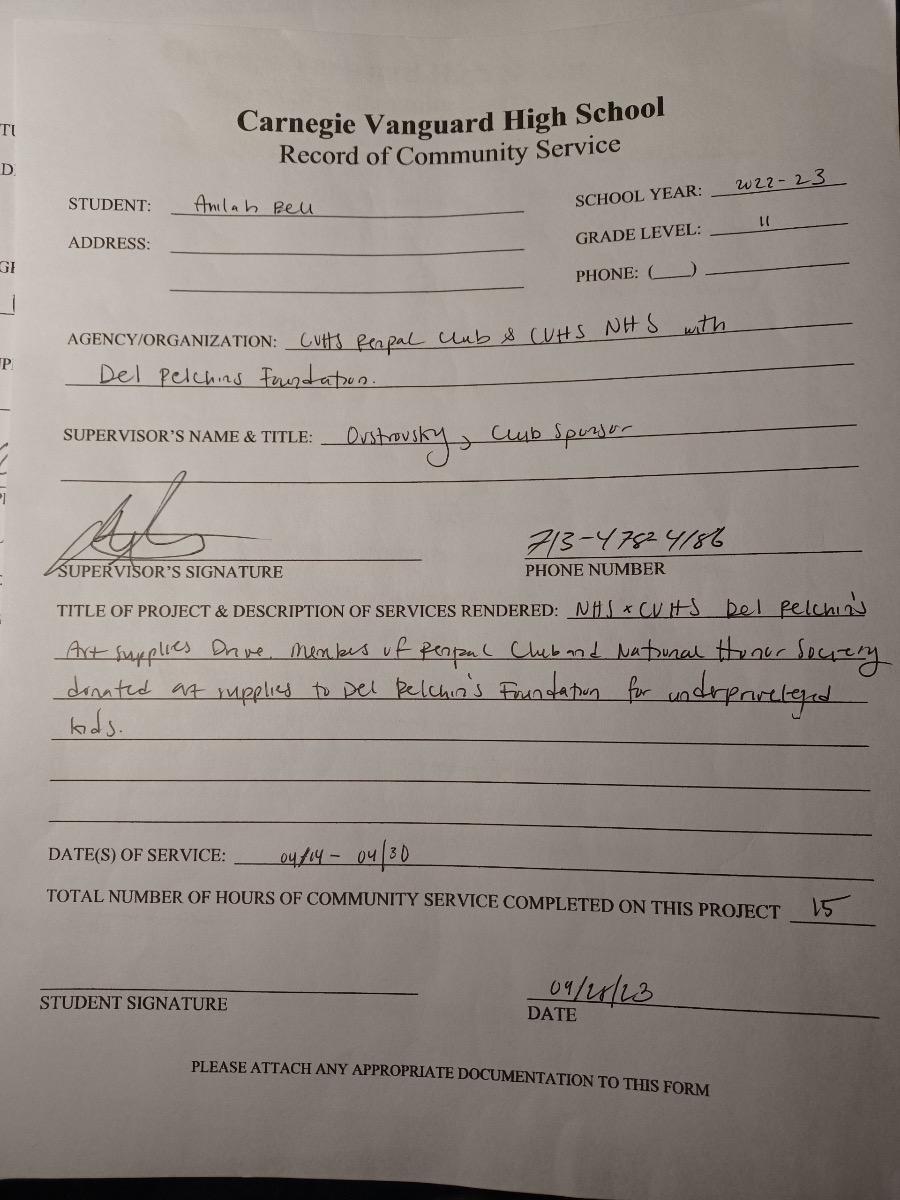 Carnegie Vanguard High School
Record of Community Service
STUDENT: Anilah Bell
SCHOOL YEAR: 2022-23
ADDRESS:
GRADE LEVEL: 11
PHONE: (    )
AGENCY/ORGANIZATION: CVHS Penpal Club & CVHS NHS with
Del Pelchins Foundation.
SUPERVISOR'S NAME & TITLE: Ovstrovsky, Club Sponsor
713-478-4186
SUPERVISOR'S SIGNATURE
PHONE NUMBER
TITLE OF PROJECT & DESCRIPTION OF SERVICES RENDERED: NHS x CVHS Del Pelchin's
Art supplies Drive. Members of Penpal Club and National Honor Society
donated art supplies to Del Pelchin's Foundation for underpriveleged
kids.
DATE(S) OF SERVICE: 04/14 - 04/30
TOTAL NUMBER OF HOURS OF COMMUNITY SERVICE COMPLETED ON THIS PROJECT 15
STUDENT SIGNATURE
DATE
PLEASE ATTACH ANY APPROPRIATE DOCUMENTATION TO THIS FORM